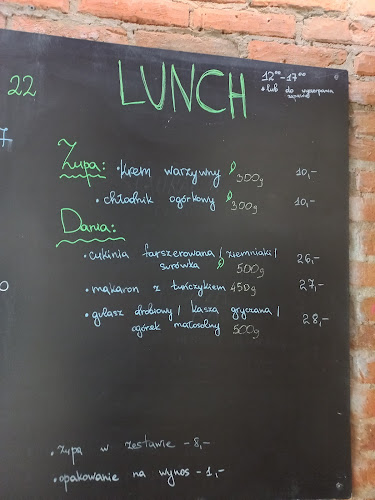 22
LUNCH
12⁰⁰-17⁰⁰
*lub do wyczerpania
zapasów
7
Zupa: • krem warzywny 300g 10,-
• chłodnik ogórkowy 300g 10,-
Dania:
• cukinia farszerowana / ziemniaki /
surówka 500g 26,-
• makaron z tuńczykiem 450g 27,-
• gulasz drobiowy / kasza gryczana /
ogórek małosolny 500g 28,-
• zupa w zestawie - 8,-
• opakowanie na wynos - 1,-